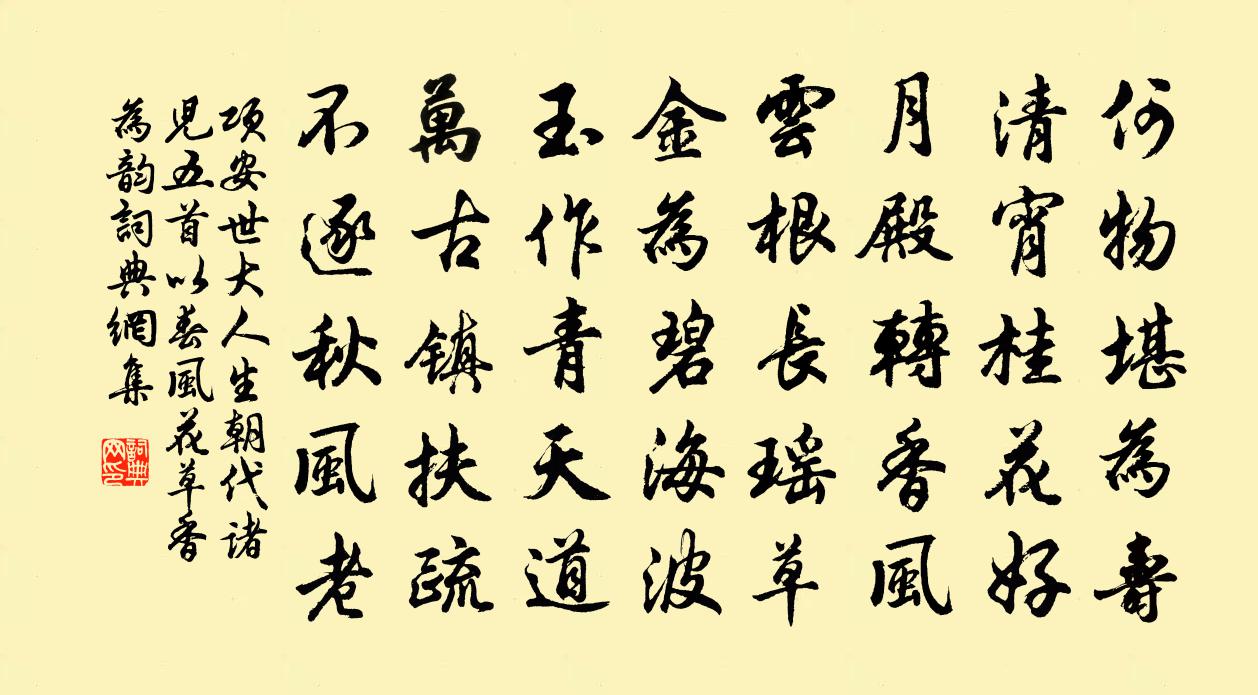 何物堪為壽
清宵桂花好
月殿轉香風
雲根長瑶草
金為碧海波
玉作青天道
萬古鎮扶疏
不逐秋風老
项安世大人生朝代诸
児五首以春風花草香
為韵詞典網集
詞典網印